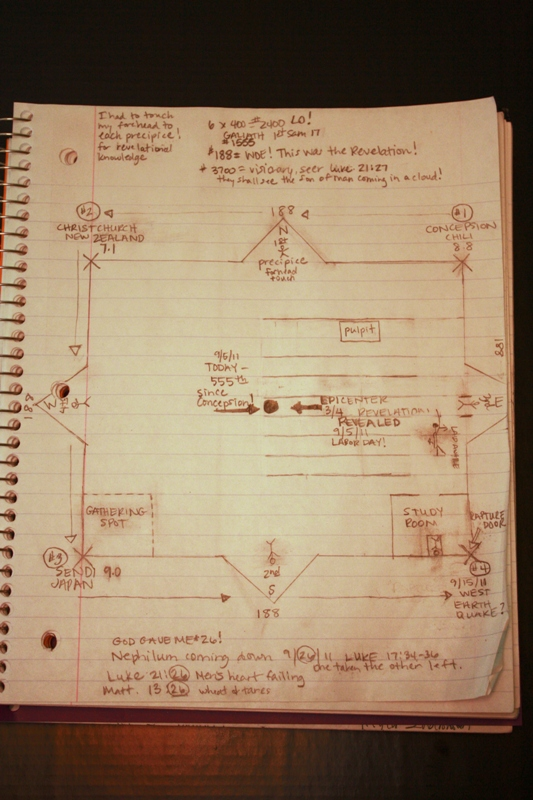 I had to touch
my forehead to
each precipice!
for revelational
knowledge
6 x 400 = 2400 LO!
GALIATH 1st Sam 17
#1555
#188 = WOE! This was the Revelation!
* 3700 = visionary, seer Luke 21:27
they shall see the son of man coming in a cloud!
#2
CHRISTCHURCH
NEW ZEALAND
7.1
188
N
1st
precipice
forehead
touch
#1
CONCEPSION
CHILI
8.8
pulpit
188
9/5/11
TODAY -
555th
since
Conception!
EPICENTER
3/4 REVELATION!
REVEALED
9/5/11
LABOR DAY!
188
W
E
GATHERING
SPOT
STUDY
ROOM
RAPTURE
DOOR
#3
SENDI 9.0
JAPAN
2nd
S
188
#4
9/15/11
WEST
EARTH
QUAKE?
GOD GAVE ME #26!
Nephilum coming down 9/26/11 LUKE 17:34-36
one taken the other left.
Luke 21:26 Men's heart failing
Matt. 13:26 wheat & tares